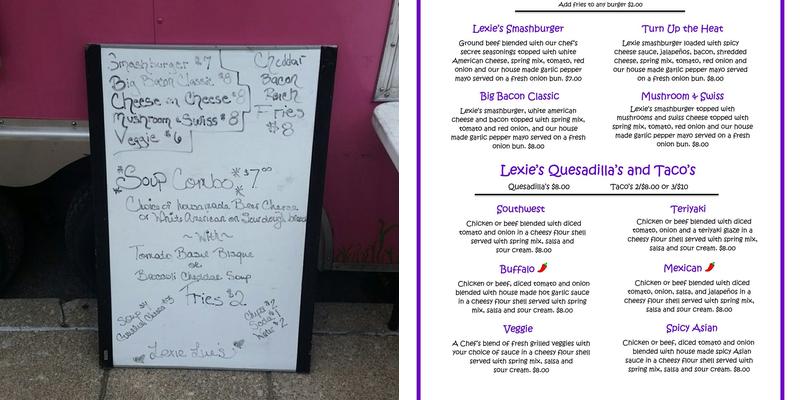 Smashburger $7
Big Bacon Classic $8
Cheese on Cheese $8
Mushroom & Swiss $8
Veggie $6
Cheddar
Bacon
Ranch
Fries
$8
Soup Combo $7.00
Choice of housemade Beer Cheese
or White American on Sourdough bread
~ With ~
Tomato Basil Bisque
or
Broccoli Cheddar Soup
Fries $2
Soup $4
Grilled Cheese $5
Chips $2
Soda $
Water $2
Lexie Lue's
Add fries to any burger $2.00
Lexie's Smashburger
Ground beef blended with our chef's
secret seasonings topped with white
American cheese, spring mix, tomato, red
onion and our house made garlic pepper
mayo served on a fresh onion bun. $7.00
Turn Up the Heat
Lexie smashburger loaded with spicy
cheese sauce, jalapeños, bacon, shredded
cheese, spring mix, tomato, red onion and
our house made garlic pepper mayo served
on a fresh onion bun. $8.00
Big Bacon Classic
Lexie's smashburger, white american
cheese and bacon topped with spring mix,
tomato and red onion, and our house
made garlic pepper mayo served on a fresh
onion bun. $8.00
Mushroom & Swiss
Lexie's smashburger topped with
mushrooms and swiss cheese topped with
spring mix, tomato, red onion and our house
made garlic pepper mayo served on a fresh
onion bun. $8.00
Lexie's Quesadilla's and Taco's
Quesadilla's $8.00 Taco's 2/$8.00 or 3/$10
Southwest
Chicken or beef blended with diced
tomato and onion in a cheesy flour shell
served with spring mix, salsa and
sour cream. $8.00
Teriyaki
Chicken or beef blended with diced
tomato, onion and a teriyaki glaze in a
cheesy flour shell served with spring mix,
salsa and sour cream. $8.00
Buffalo
Chicken or beef, diced tomato and onion
blended with house made hot garlic sauce
in a cheesy flour shell served with spring
mix, salsa and sour cream. $8.00
Mexican
Chicken or beef blended with diced
tomato, onion, salsa, and jalapeños in a
cheesy flour shell served with spring mix,
salsa and sour cream. $8.00
Veggie
A Chef's blend of fresh grilled veggies with
your choice of sauce in a cheesy flour shell
served with spring mix, salsa and
sour cream. $8.00
Spicy Asian
Chicken or beef, diced tomato and onion
blended with house made spicy Asian
sauce in a cheesy flour shell served with
spring mix, salsa and sour cream. $8.00